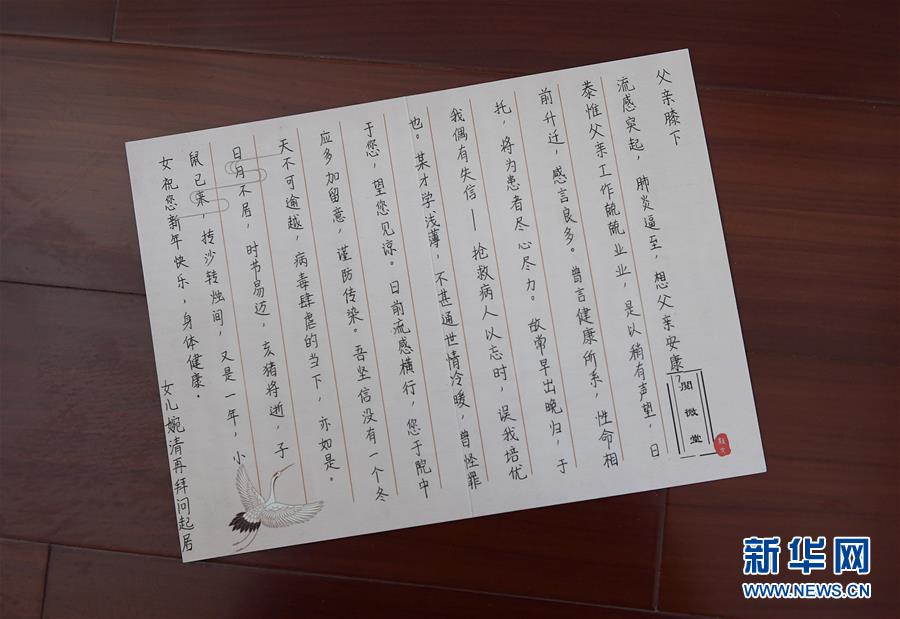 父亲膝下
流感突起，肺炎逼至，想父亲安康？
恭惟父亲工作兢兢业业，是以稍有声望，日
前升迁，感言良多。曾言健康所系，性命相
托，将为患者尽心尽力。故常早出晚归，于
我偶有失信——抢救病人以忘时，误我培优
也。某才学浅薄，不甚通世情冷暖，曾怪罪
于您，望您见谅。日前流感横行，您于院中
应多加留意，谨防传染。吾坚信没有一个冬
天不可逾越，病毒肆虐的当下，亦如是。
日月不居，时书易迈，亥猪将逝，子
鼠已来，抟沙转烛间，又是一年，小
女祝您新年快乐，身体健康。
女儿婉清再拜问起居
閲微堂
新华网
WWW.NEWS.CN